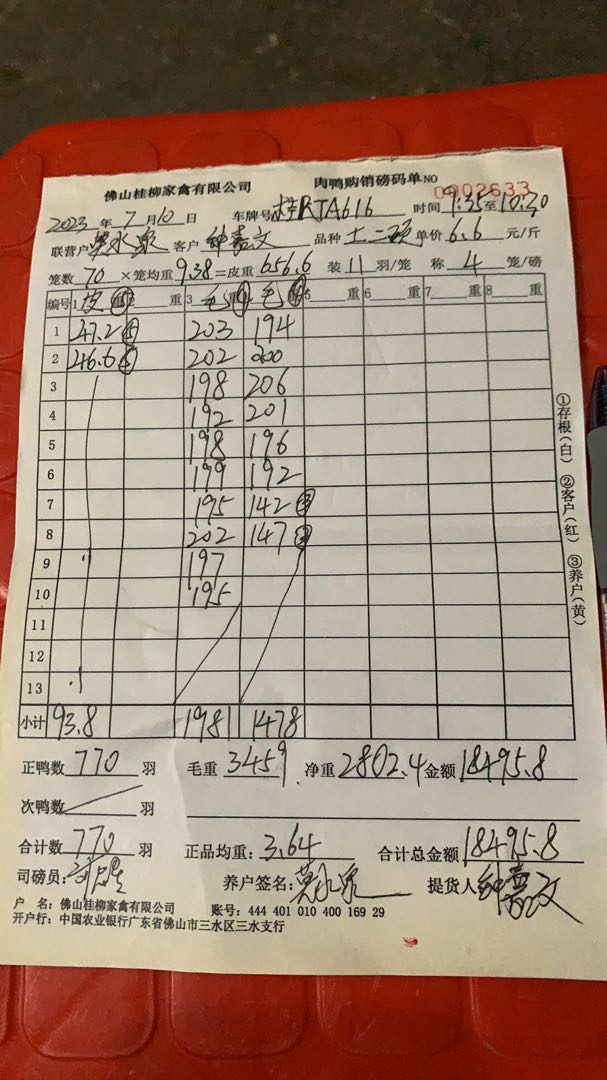 佛山桂柳家禽有限公司 肉鸭购销磅码单 NO 0002633
2023年7月10日 车牌号 桂RJA616 时间 9:35至10:30
联营户 莫水泉 客户 钟嘉文 品种 土二硕 单价 6.6 元/斤
笼数 70 ×笼均重 9.38 =皮重 656.6 装 11 羽/笼 称 4 笼/磅
编号 1 皮 重 重 3 毛 重 4 毛 重 5 重 6 重 7 重 8 重
1 47.2⑤ 203 194
2 46.6⑤ 202 200
3 198 206
4 192 201
5 198 196
6 199 192
7 195 142③
8 202 147③
9 197
10 195
11
12
13
小计 93.8 1981 1478
正鸭数 770 羽 毛重 3459 净重 2802.4 金额 18495.8
次鸭数 羽
合计数 770 羽 正品均重: 3.64 合计总金额 18495.8
司磅员: 养户签名: 莫水泉 提货人 钟嘉文
户 名: 佛山桂柳家禽有限公司 账号: 444 401 010 400 169 29
开户行: 中国农业银行广东省佛山市三水区三水支行
①存根(白) ②客户(红) ③养户(黄)